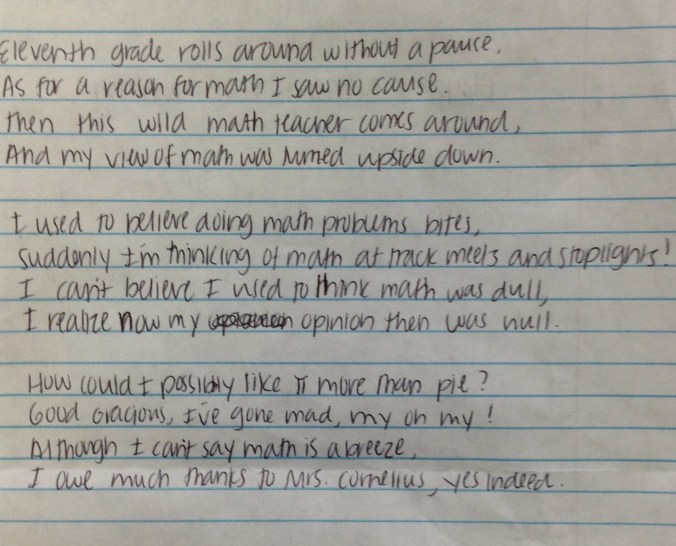 Eleventh grade rolls around without a pause.
As for a reason for math I saw no cause.
Then this wild math teacher comes around,
And my view of math was turned upside down.
I used to believe doing math problems bites,
Suddenly I'm thinking of math at track meets and stoplights!
I can't believe I used to think math was dull,
I realize now my opinion then was null.
How could I possibly like π more than pie?
Good Gracious, I've gone mad, my oh my!
Although I can't say math is a breeze,
I owe much thanks to Mrs. Cornelius, yes indeed.